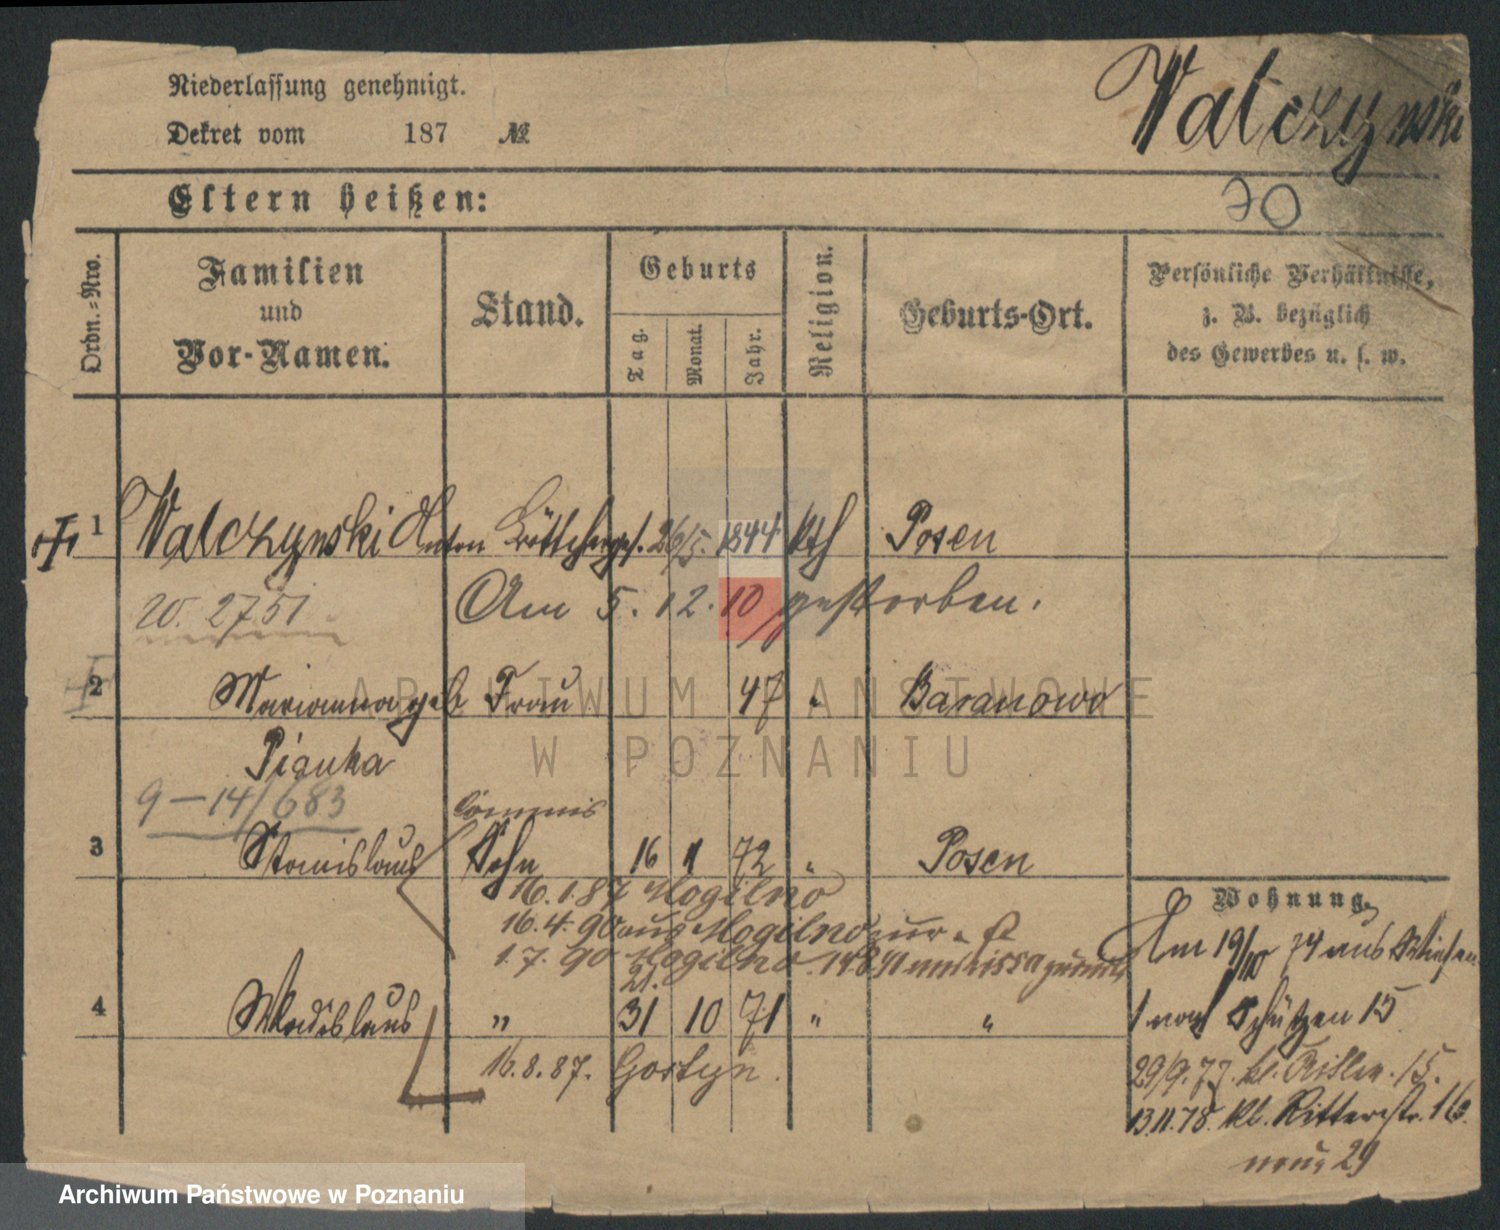 Niederlassung genehmigt.
Walczynski
Dekret vom 187 №
Eltern heißen:
70
Ordn.-Nro.
Familien
und
Vor-Namen.
Stand.
Geburts
Tag.
Monat.
Jahr.
Religion.
Geburts-Ort.
Persönliche Verhältnisse,
z. B. bezüglich
des Gewerbes u. s. w.
1 Walczynski Anton Böttcherges. 26/5. 1844 kth Posen
20. 2751 Am 5. 12. 10 gestorben.
2 Marianna geb Frau 47 " Baranowo
Pianka
9-14/683 Commis
3 Stanislaus Sohn 16 1 72 " Posen
16.1.87 Mogilno
16.4.90 aus Mogilno zur
1.7.90 Mogilno
21.
4 Wladislaus " 31 10 71 " "
16.8.87. Gostyn.
Wohnung.
Am 19/10 74 aus
1 nach Schützen 15
29/9.77. kl. Ritter. 15.
13.11.78. kl. Ritterstr. 16.
neue 29
ARCHIWUM PAŃSTWOWE
W POZNANIU
Archiwum Państwowe w Poznaniu